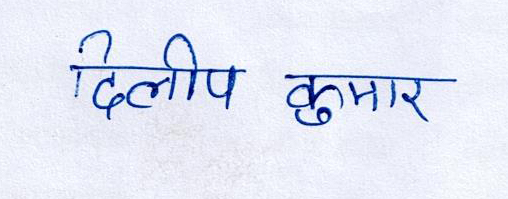 दिलीप कुमार